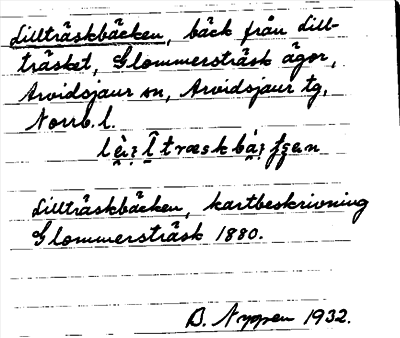 Lillträskbäcken, bäck från Lill-
träsket, Glommersträsk ägor,
Arvidsjaur sn, Arvidsjaur tg,
Norrb. l.
Lillträskbäcken, kartbeskrivning
Glommersträsk 1880.
B. Nyppen 1932.